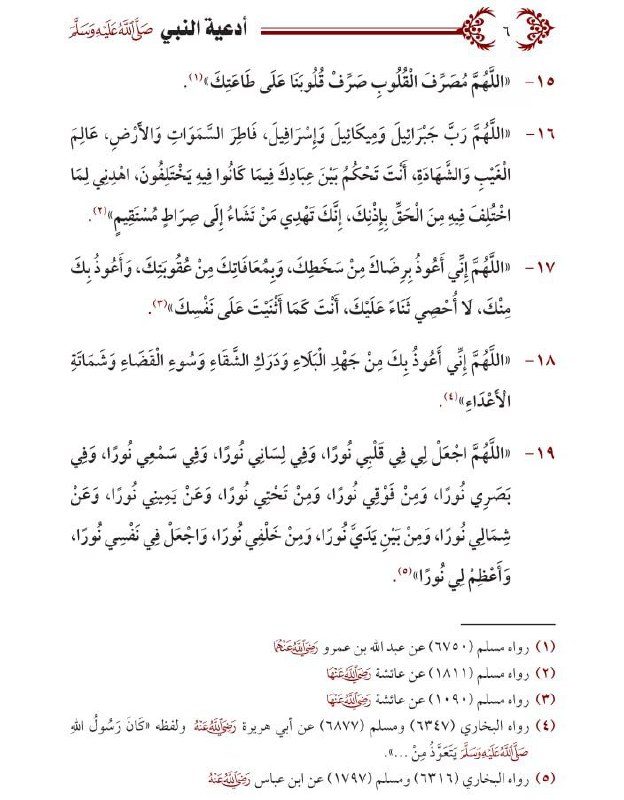 ٦ أدعية النبي ﷺ
١٥- «اللَّهُمَّ مُصَرِّفَ الْقُلُوبِ صَرِّفْ قُلُوبَنَا عَلَى طَاعَتِكَ»(١).
١٦- «اللَّهُمَّ رَبَّ جَبْرَائِيلَ وَمِيكَائِيلَ وَإِسْرَافِيلَ، فَاطِرَ السَّمَوَاتِ وَالأَرْضِ، عَالِمَ
الْغَيْبِ وَالشَّهَادَةِ، أَنْتَ تَحْكُمُ بَيْنَ عِبَادِكَ فِيمَا كَانُوا فِيهِ يَخْتَلِفُونَ، اهْدِنِي لِمَا
اخْتُلِفَ فِيهِ مِنَ الْحَقِّ بِإِذْنِكَ، إِنَّكَ تَهْدِي مَنْ تَشَاءُ إِلَى صِرَاطٍ مُسْتَقِيمٍ»(٢).
١٧- «اللَّهُمَّ إِنِّي أَعُوذُ بِرِضَاكَ مِنْ سَخَطِكَ، وَبِمُعَافَاتِكَ مِنْ عُقُوبَتِكَ، وَأَعُوذُ بِكَ
مِنْكَ، لَا أُحْصِي ثَنَاءً عَلَيْكَ، أَنْتَ كَمَا أَثْنَيْتَ عَلَى نَفْسِكَ»(٣).
١٨- «اللَّهُمَّ إِنِّي أَعُوذُ بِكَ مِنْ جَهْدِ الْبَلَاءِ وَدَرَكِ الشَّقَاءِ وَسُوءِ الْقَضَاءِ وَشَمَاتَةِ
الْأَعْدَاءِ»(٤).
١٩- «اللَّهُمَّ اجْعَلْ لِي فِي قَلْبِي نُورًا، وَفِي لِسَانِي نُورًا، وَفِي سَمْعِي نُورًا، وَفِي
بَصَرِي نُورًا، وَمِنْ فَوْقِي نُورًا، وَمِنْ تَحْتِي نُورًا، وَعَنْ يَمِينِي نُورًا، وَعَنْ
شِمَالِي نُورًا، وَمِنْ بَيْنِ يَدَيَّ نُورًا، وَمِنْ خَلْفِي نُورًا، وَاجْعَلْ فِي نَفْسِي نُورًا،
وَأَعْظِمْ لِي نُورًا»(٥).
(١) رواه مسلم (٦٧٥٠) عن عبد الله بن عمرو رَضِيَ اللَّهُ عَنْهُمَا
(٢) رواه مسلم (١٨١١) عن عائشة رَضِيَ اللَّهُ عَنْهَا
(٣) رواه مسلم (١٠٩٠) عن عائشة رَضِيَ اللَّهُ عَنْهَا
(٤) رواه البخاري (٦٣٤٧) ومسلم (٦٨٧٧) عن أبي هريرة رَضِيَ اللَّهُ عَنْهُ ولفظه «كَانَ رَسُولُ اللهِ
ﷺ يَتَعَوَّذُ مِنْ ...».
(٥) رواه البخاري (٦٣١٦) ومسلم (١٧٩٧) عن ابن عباس رَضِيَ اللَّهُ عَنْهُ